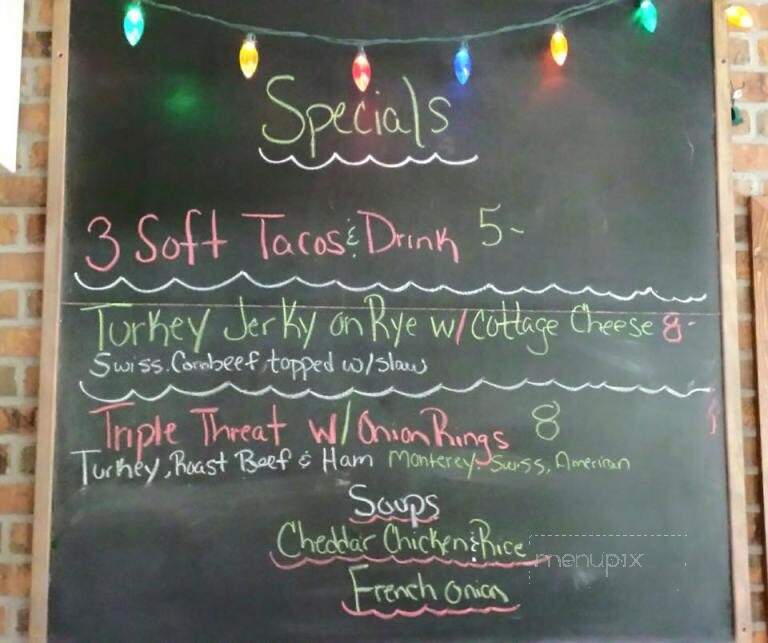 Specials
3 Soft Tacos & Drink 5-
Turkey Jerky on Rye w/ Cottage Cheese 8-
Swiss. Cornbeef, topped w/ slaw
Triple Threat w/ Onion Rings 8
Turkey, Roast Beef & Ham Monterey, Swiss, American
Soups
Cheddar Chicken & Rice
French Onion
menupix